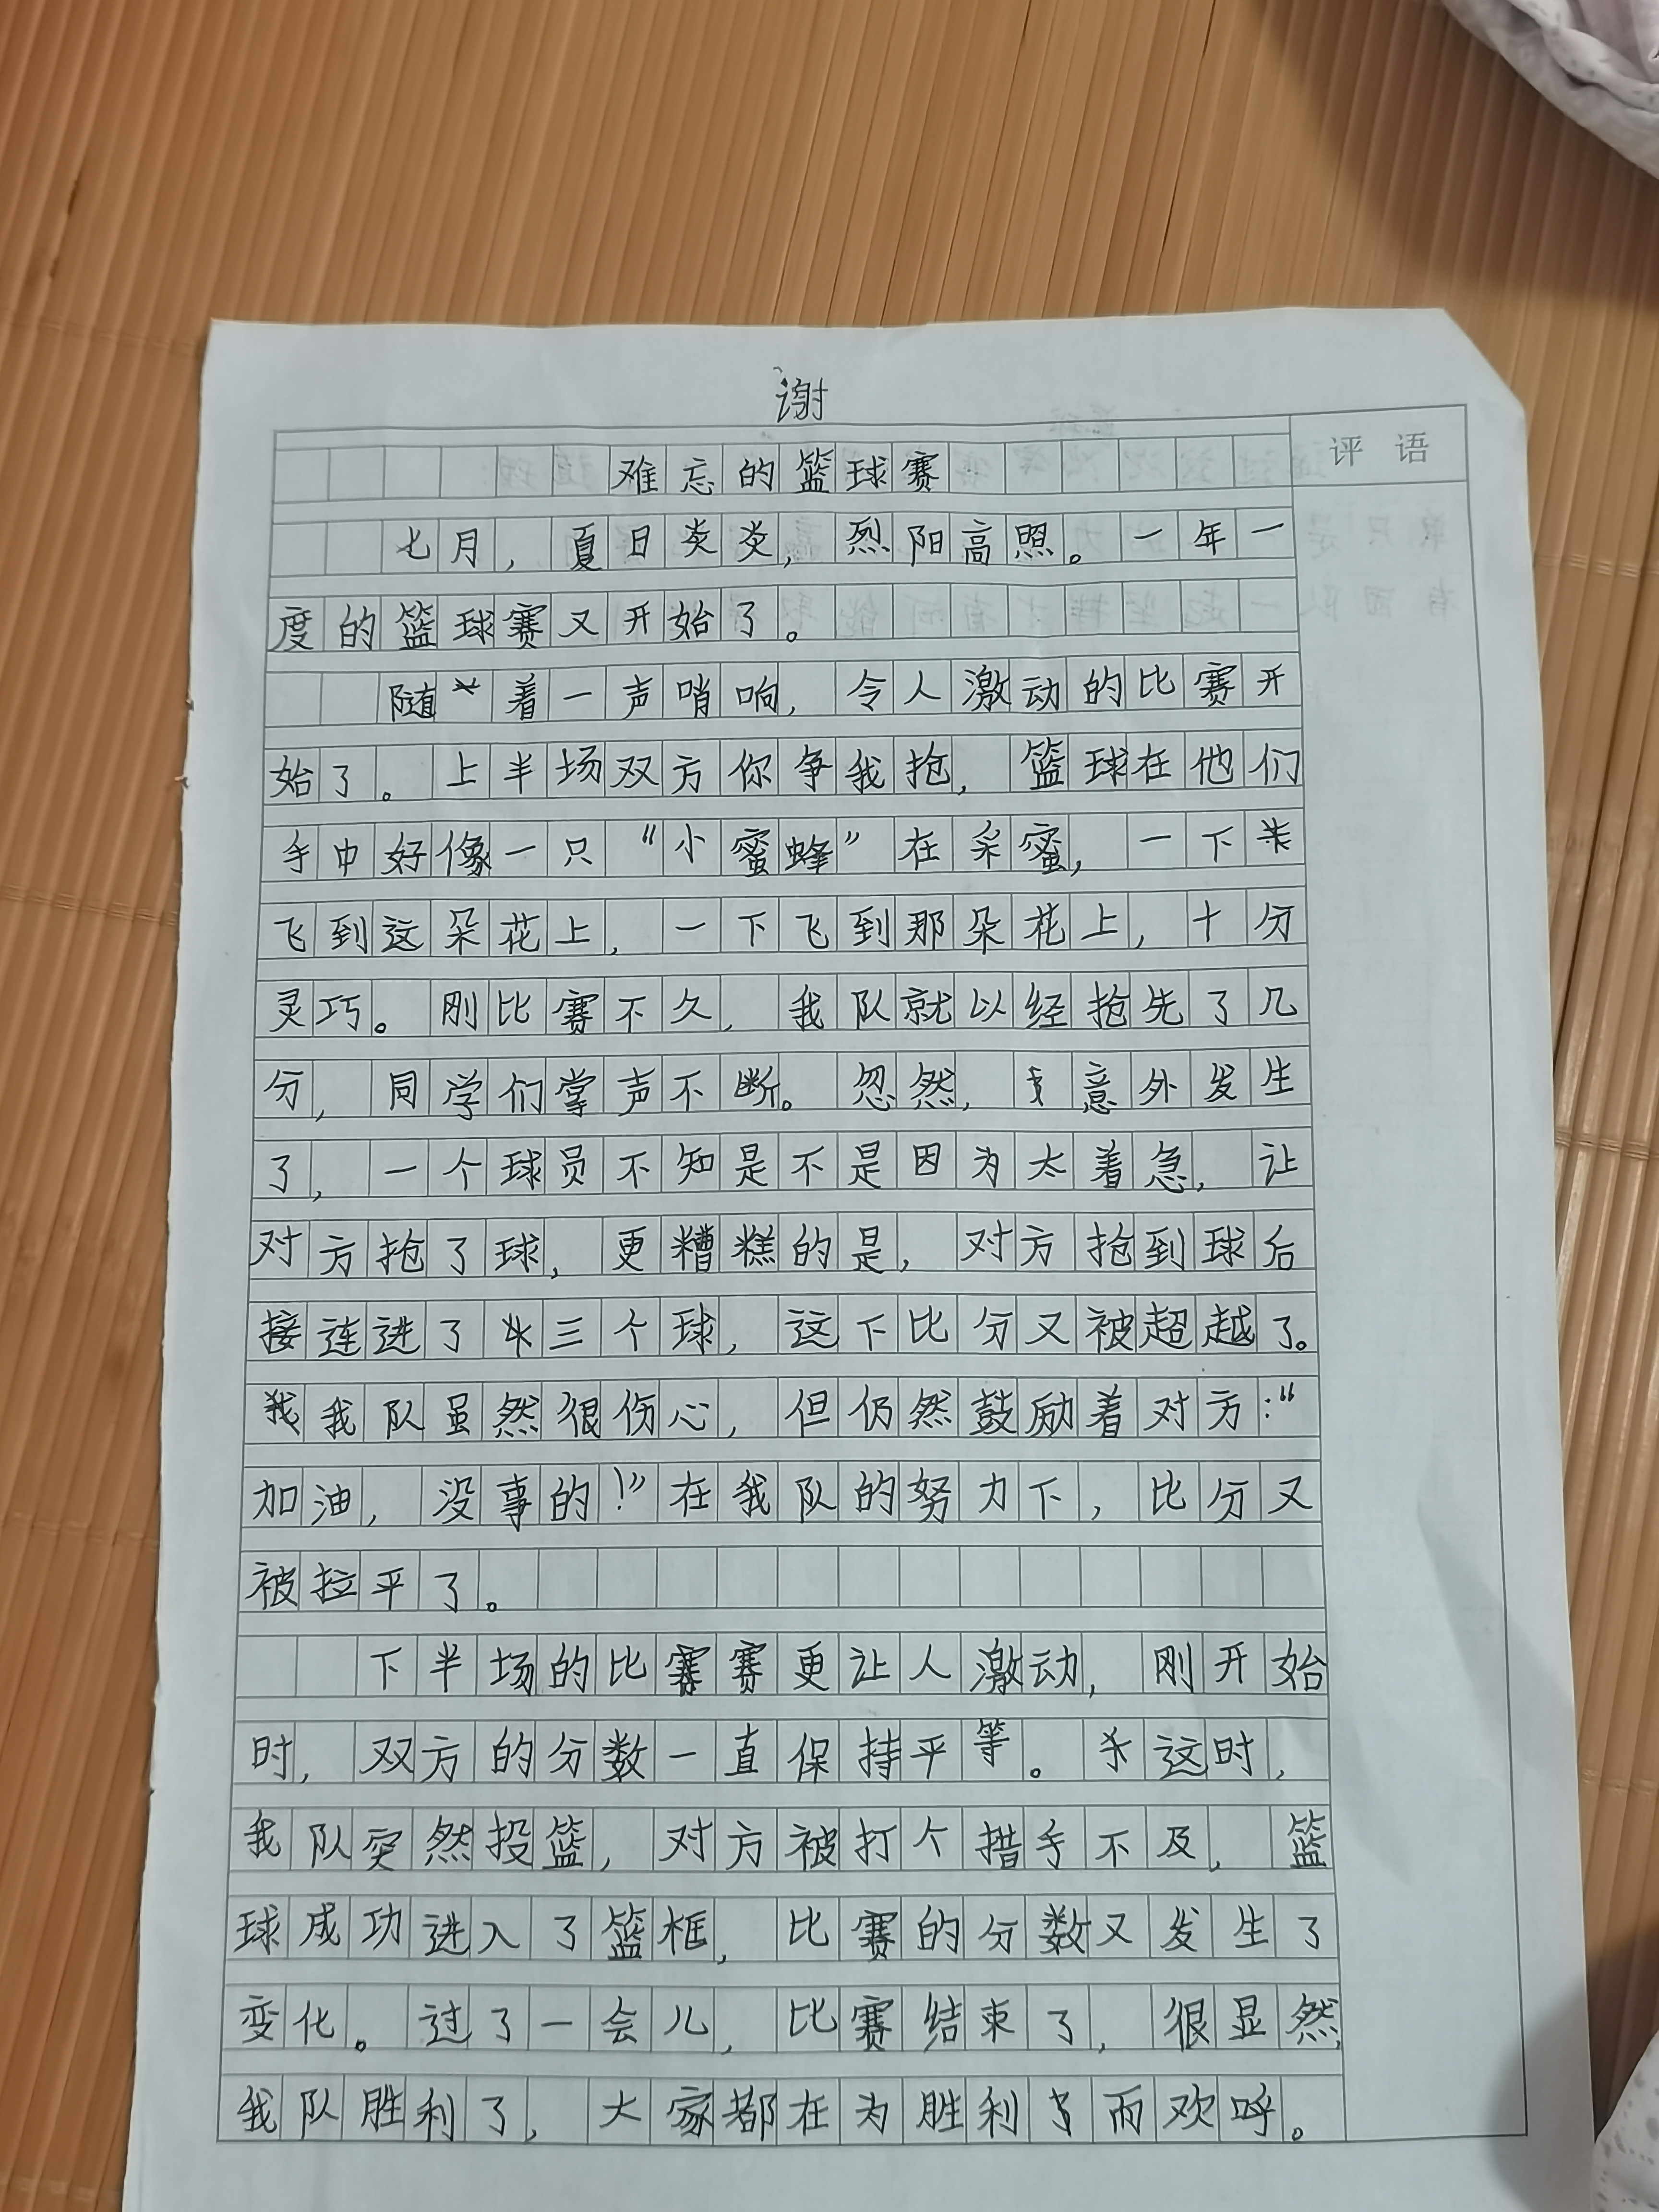 谢
评语
难忘的篮球赛
七月，夏日炎炎，烈阳高照。一年一
度的篮球赛又开始了。
随着一声哨响，令人激动的比赛开
始了。上半场双方你争我抢，篮球在他们
手中好像一只“小蜜蜂”在采蜜，一下
飞到这朵花上，一下飞到那朵花上，十分
灵巧。刚比赛不久，我队就以经抢先了几
分，同学们掌声不断。忽然，意外发生
了，一个球员不知是不是因为太着急，让
对方抢了球，更糟糕的是，对方抢到球后
接连进了三个球，这下比分又被超越了。
我队虽然很伤心，但仍然鼓励着对方：“
加油，没事的！”在我队的努力下，比分又
被拉平了。
下半场的比赛更让人激动，刚开始
时，双方的分数一直保持平等。这时，
我队突然投篮，对方被打个措手不及，篮
球成功进入了篮框，比赛的分数又发生了
变化。过了一会儿，比赛结束了，很显然，
我队胜利了，大家都在为胜利而欢呼。